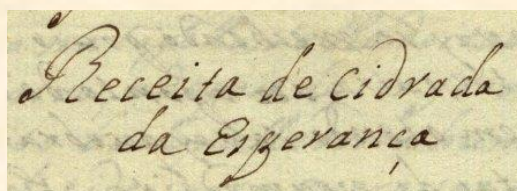 Receita de Cidrada
da Esperança